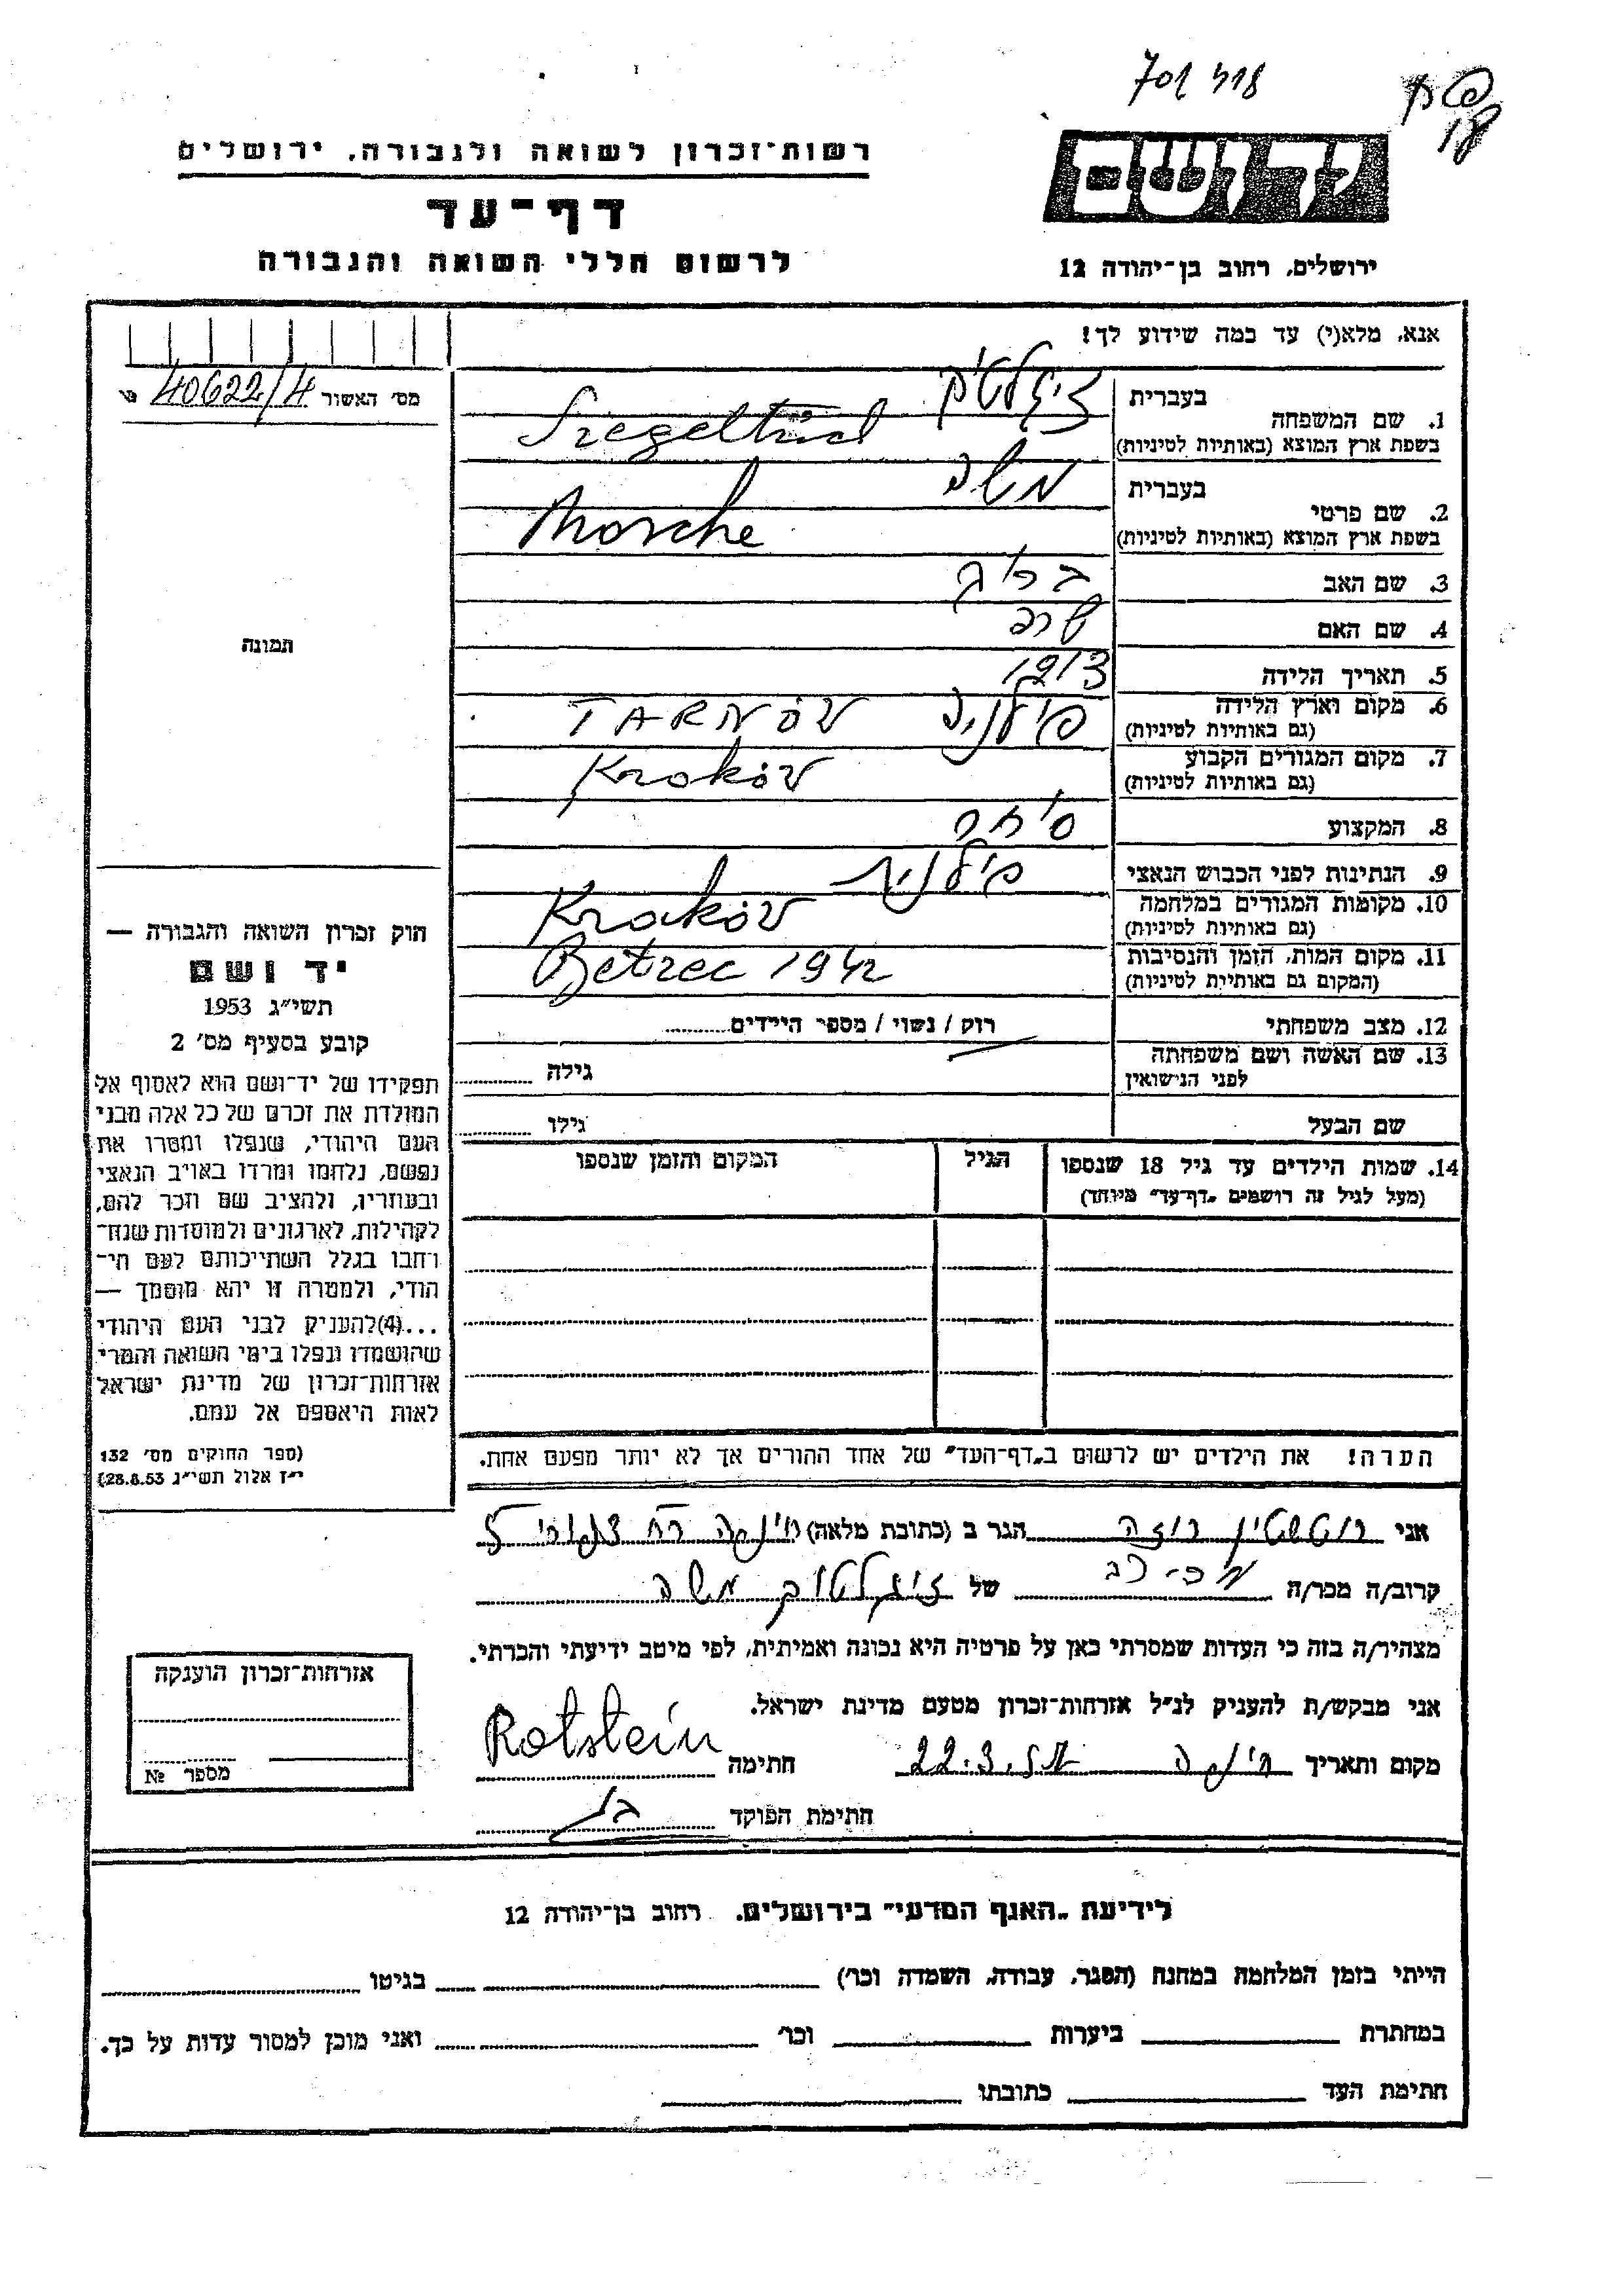 רשות־זכרון לשואה ולגבורה, ירושלים
דף־עד
לרשום חללי השואה והגבורה
יד ושם
ירושלים, רחוב בן־יהודה 12
אנא, מלא(י) עד כמה שידוע לך!
מס' האשור 40622/4
1. שם המשפחה
בעברית
בשפת ארץ המוצא (באותיות לטיניות)
2. שם פרטי
בעברית משה
בשפת ארץ המוצא (באותיות לטיניות) Morche
3. שם האב
4. שם האם שרה
5. תאריך הלידה 1913
6. מקום וארץ הלידה פולניה TARNÓV
(גם באותיות לטיניות)
7. מקום המגורים הקבוע Krokóv
(גם באותיות לטיניות)
8. המקצוע סוחר
9. הנתינות לפני הכבוש הנאצי פולנית
10. מקומות המגורים במלחמה Krakóv
(גם באותיות לטיניות)
11. מקום המות, הזמן והנסיבות Betzec 1942
(המקום גם באותיות לטיניות)
12. מצב משפחתי רוק / נשוי / מספר הילדים
13. שם האשה ושם משפחתה
לפני הנישואין
גילה
שם הבעל גילו
14. שמות הילדים עד גיל 18 שנספו הגיל המקום והזמן שנספו
(מעל לגיל זה רושמים „דף־עד" מיוחד)
הערה! את הילדים יש לרשום ב„דף־העד" של אחד ההורים אך לא יותר מפעם אחת.
תמונה
חוק זכרון השואה והגבורה —
יד ושם
תשי"ג 1953
קובע בסעיף מס' 2
תפקידו של יד־ושם הוא לאסוף אל
המולדת את זכרם של כל אלה מבני
העם היהודי, שנפלו ומסרו את
נפשם, נלחמו ומרדו באויב הנאצי
ובעוזריו, ולהציב שם וזכר להם,
לקהילות, לארגונים ולמוסדות שנח־
רחבו בגלל השתייכותם לעם הי־
הודי, ולמטרה זו יהא מוסמך —
...(4)להעניק לבני העם היהודי
שהושמדו ונפלו בימי השואה והמרי
אזרחות־זכרון של מדינת ישראל
לאות היאספם אל עמם.
(ספר החוקים מס' 132
י"ז אלול תשי"ג 28.8.53)
אני רוטשטין רוזה הגר ב (כתובת מלאה) חיפה רח 5
קרוב/ה מכר/ה של זיגלטוך משה
מצהיר/ה בזה כי העדות שמסרתי כאן על פרטיה היא נכונה ואמיתית, לפי מיטב ידיעתי והכרתי.
אני מבקש/ת להעניק לנ"ל אזרחות־זכרון מטעם מדינת ישראל.
מקום ותאריך חיפה 22.3. חתימה Rotstein
חתימת הפוקד
אזרחות־זכרון הוענקה
מספר №
לידיעת „האגף המדעי" בירושלים, רחוב בן־יהודה 12
הייתי בזמן המלחמה במחנה (הסגר, עבודה, השמדה וכו') בגיטו
במחתרת ביערות וכו' ואני מוכן למסור עדות על כך.
חתימת העד כתובתו